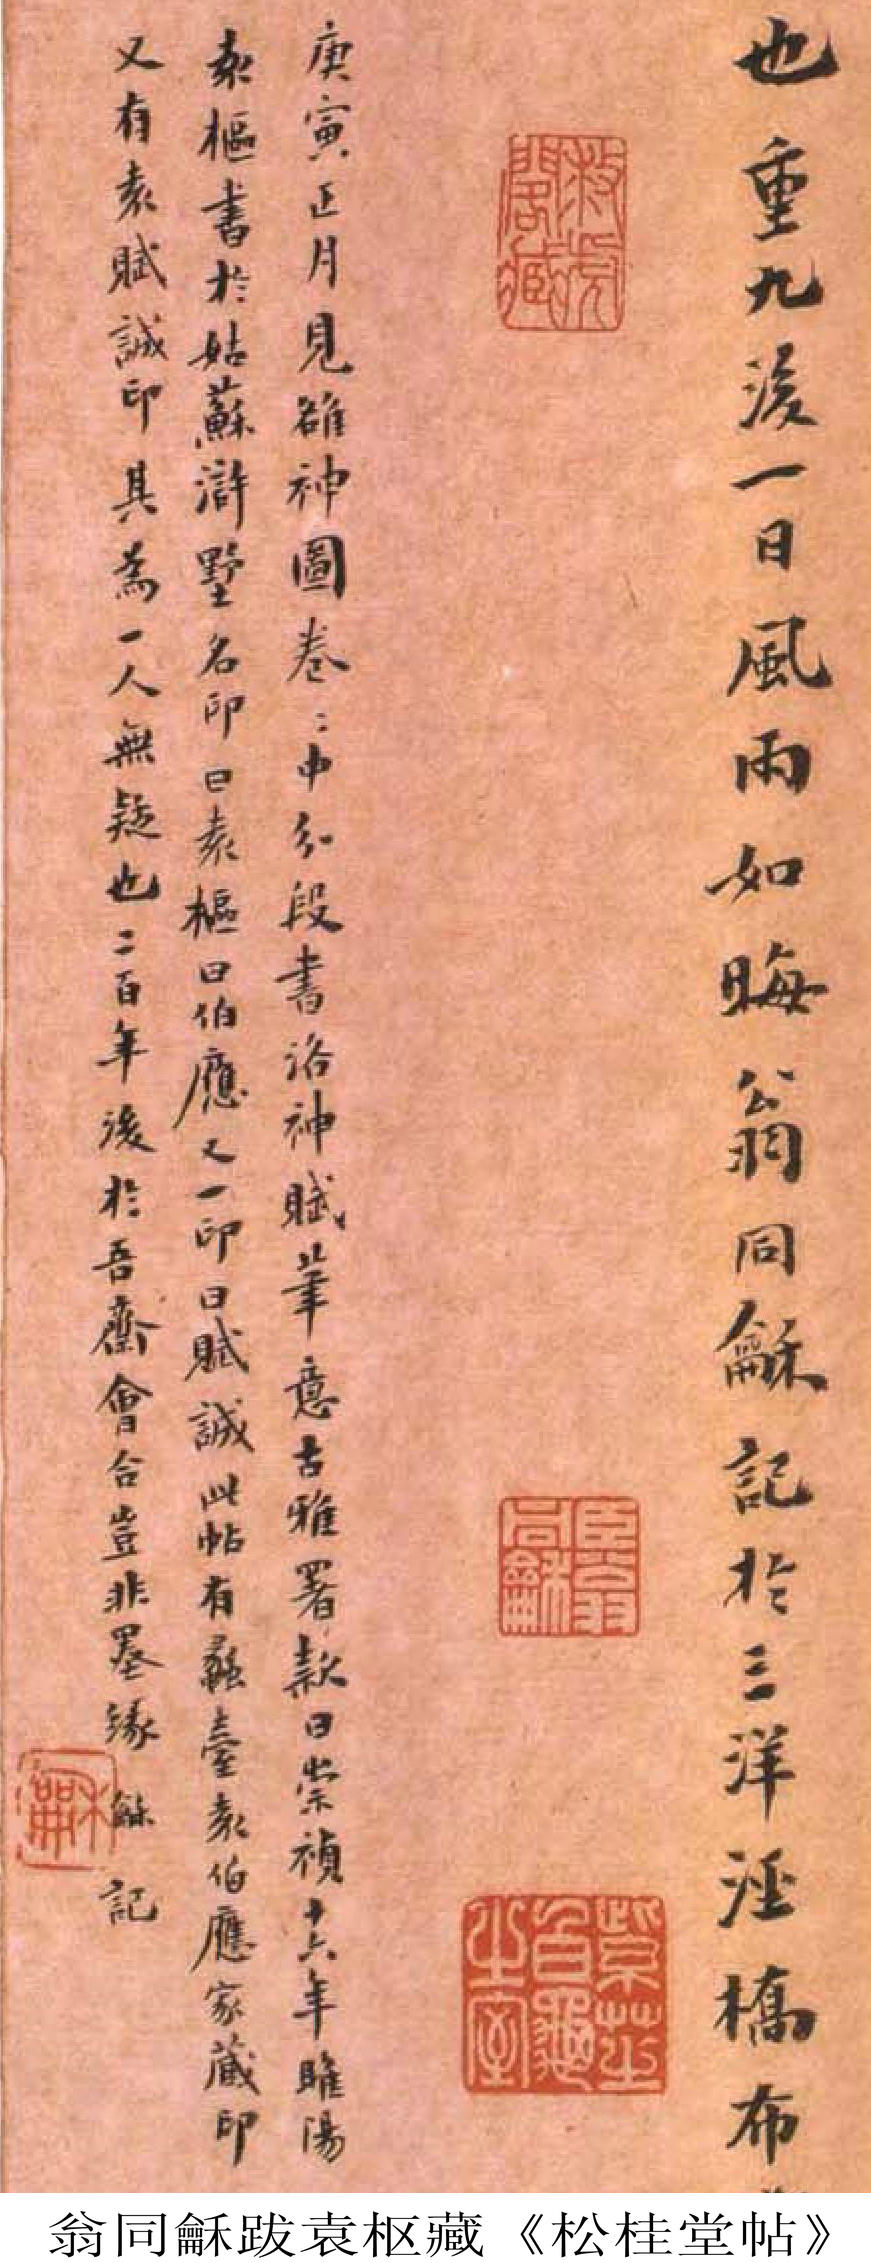 也重九後一日風雨如晦翁同龢記於三洋涇橋布
庚寅正月見雒神圖卷〻中分段書洛神賦筆意古雅署款曰崇禎十六年睢陽
袁樞書於姑蘇滸墅名印曰袁樞曰伯應又一印曰賦誠此帖有蠡臺袁伯應家藏印
又有袁賦誠印其為一人無疑也二百年後於吾齋會合豈非墨緣 龢記
紫芝白龜之室
翁同龢跋袁枢藏《松桂堂帖》